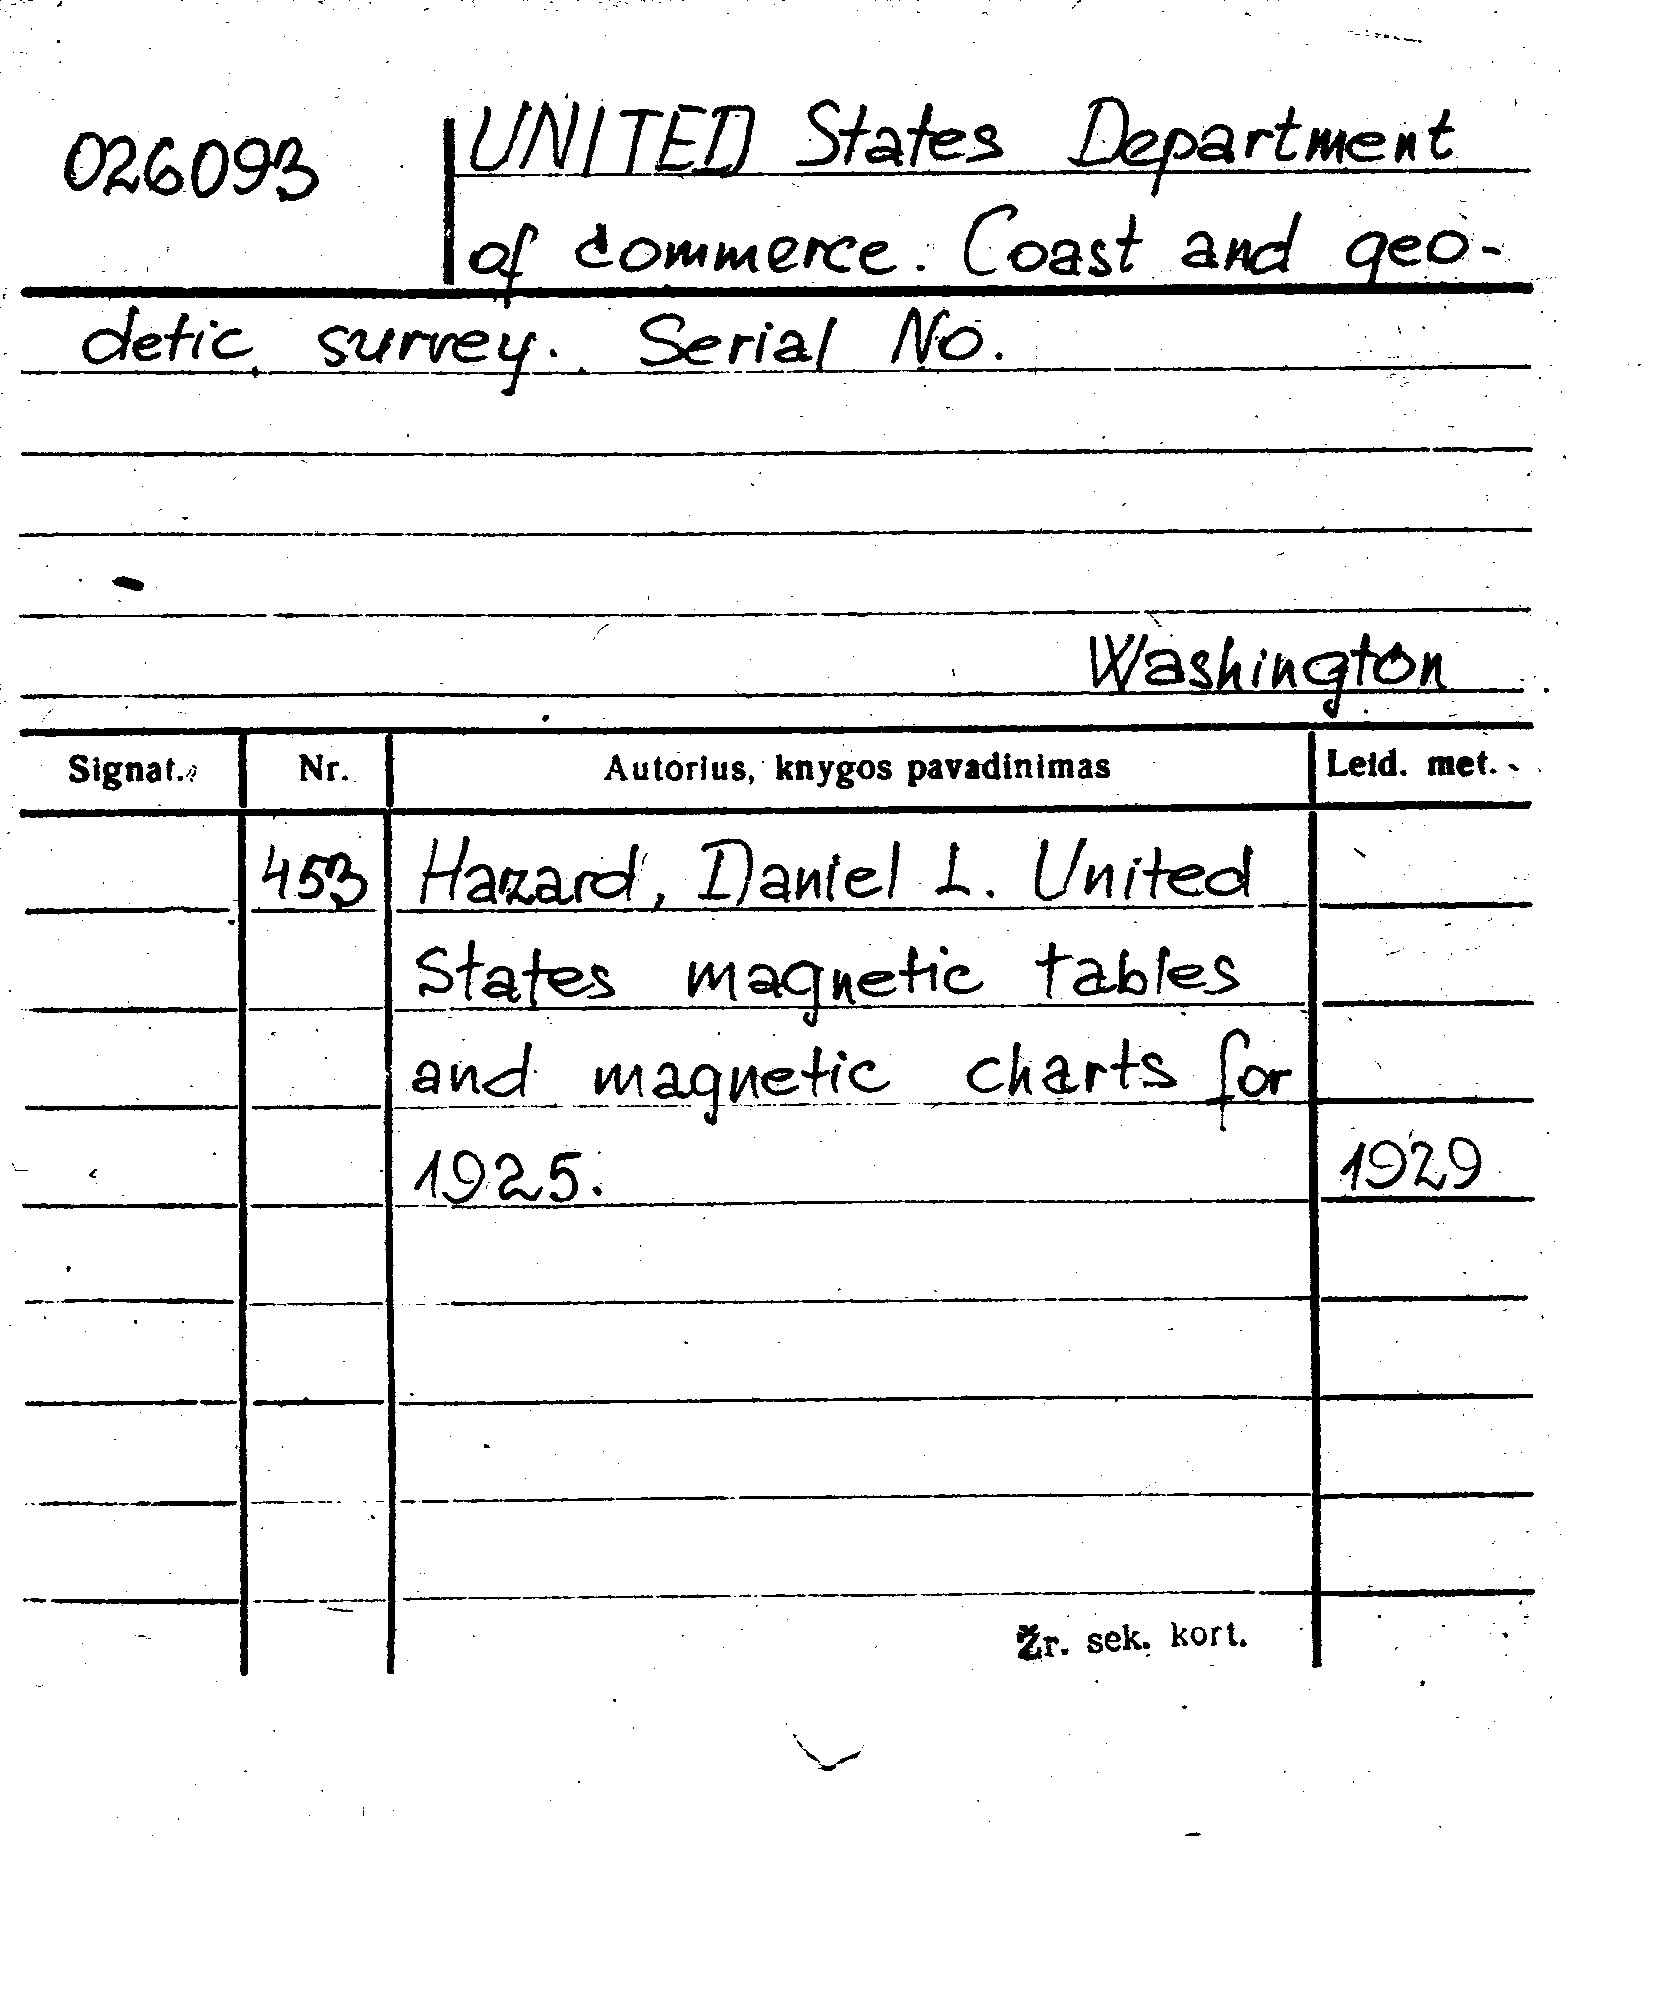 026093 UNITED States Department
of commerce. Coast and geo-
detic survey. Serial No.
Washington
Signat. Nr. Autorius, knygos pavadinimas Leid. met.
453 Hazard, Daniel L. United
States magnetic tables
and magnetic charts for
1925. 1929
Žr. sek. kort.